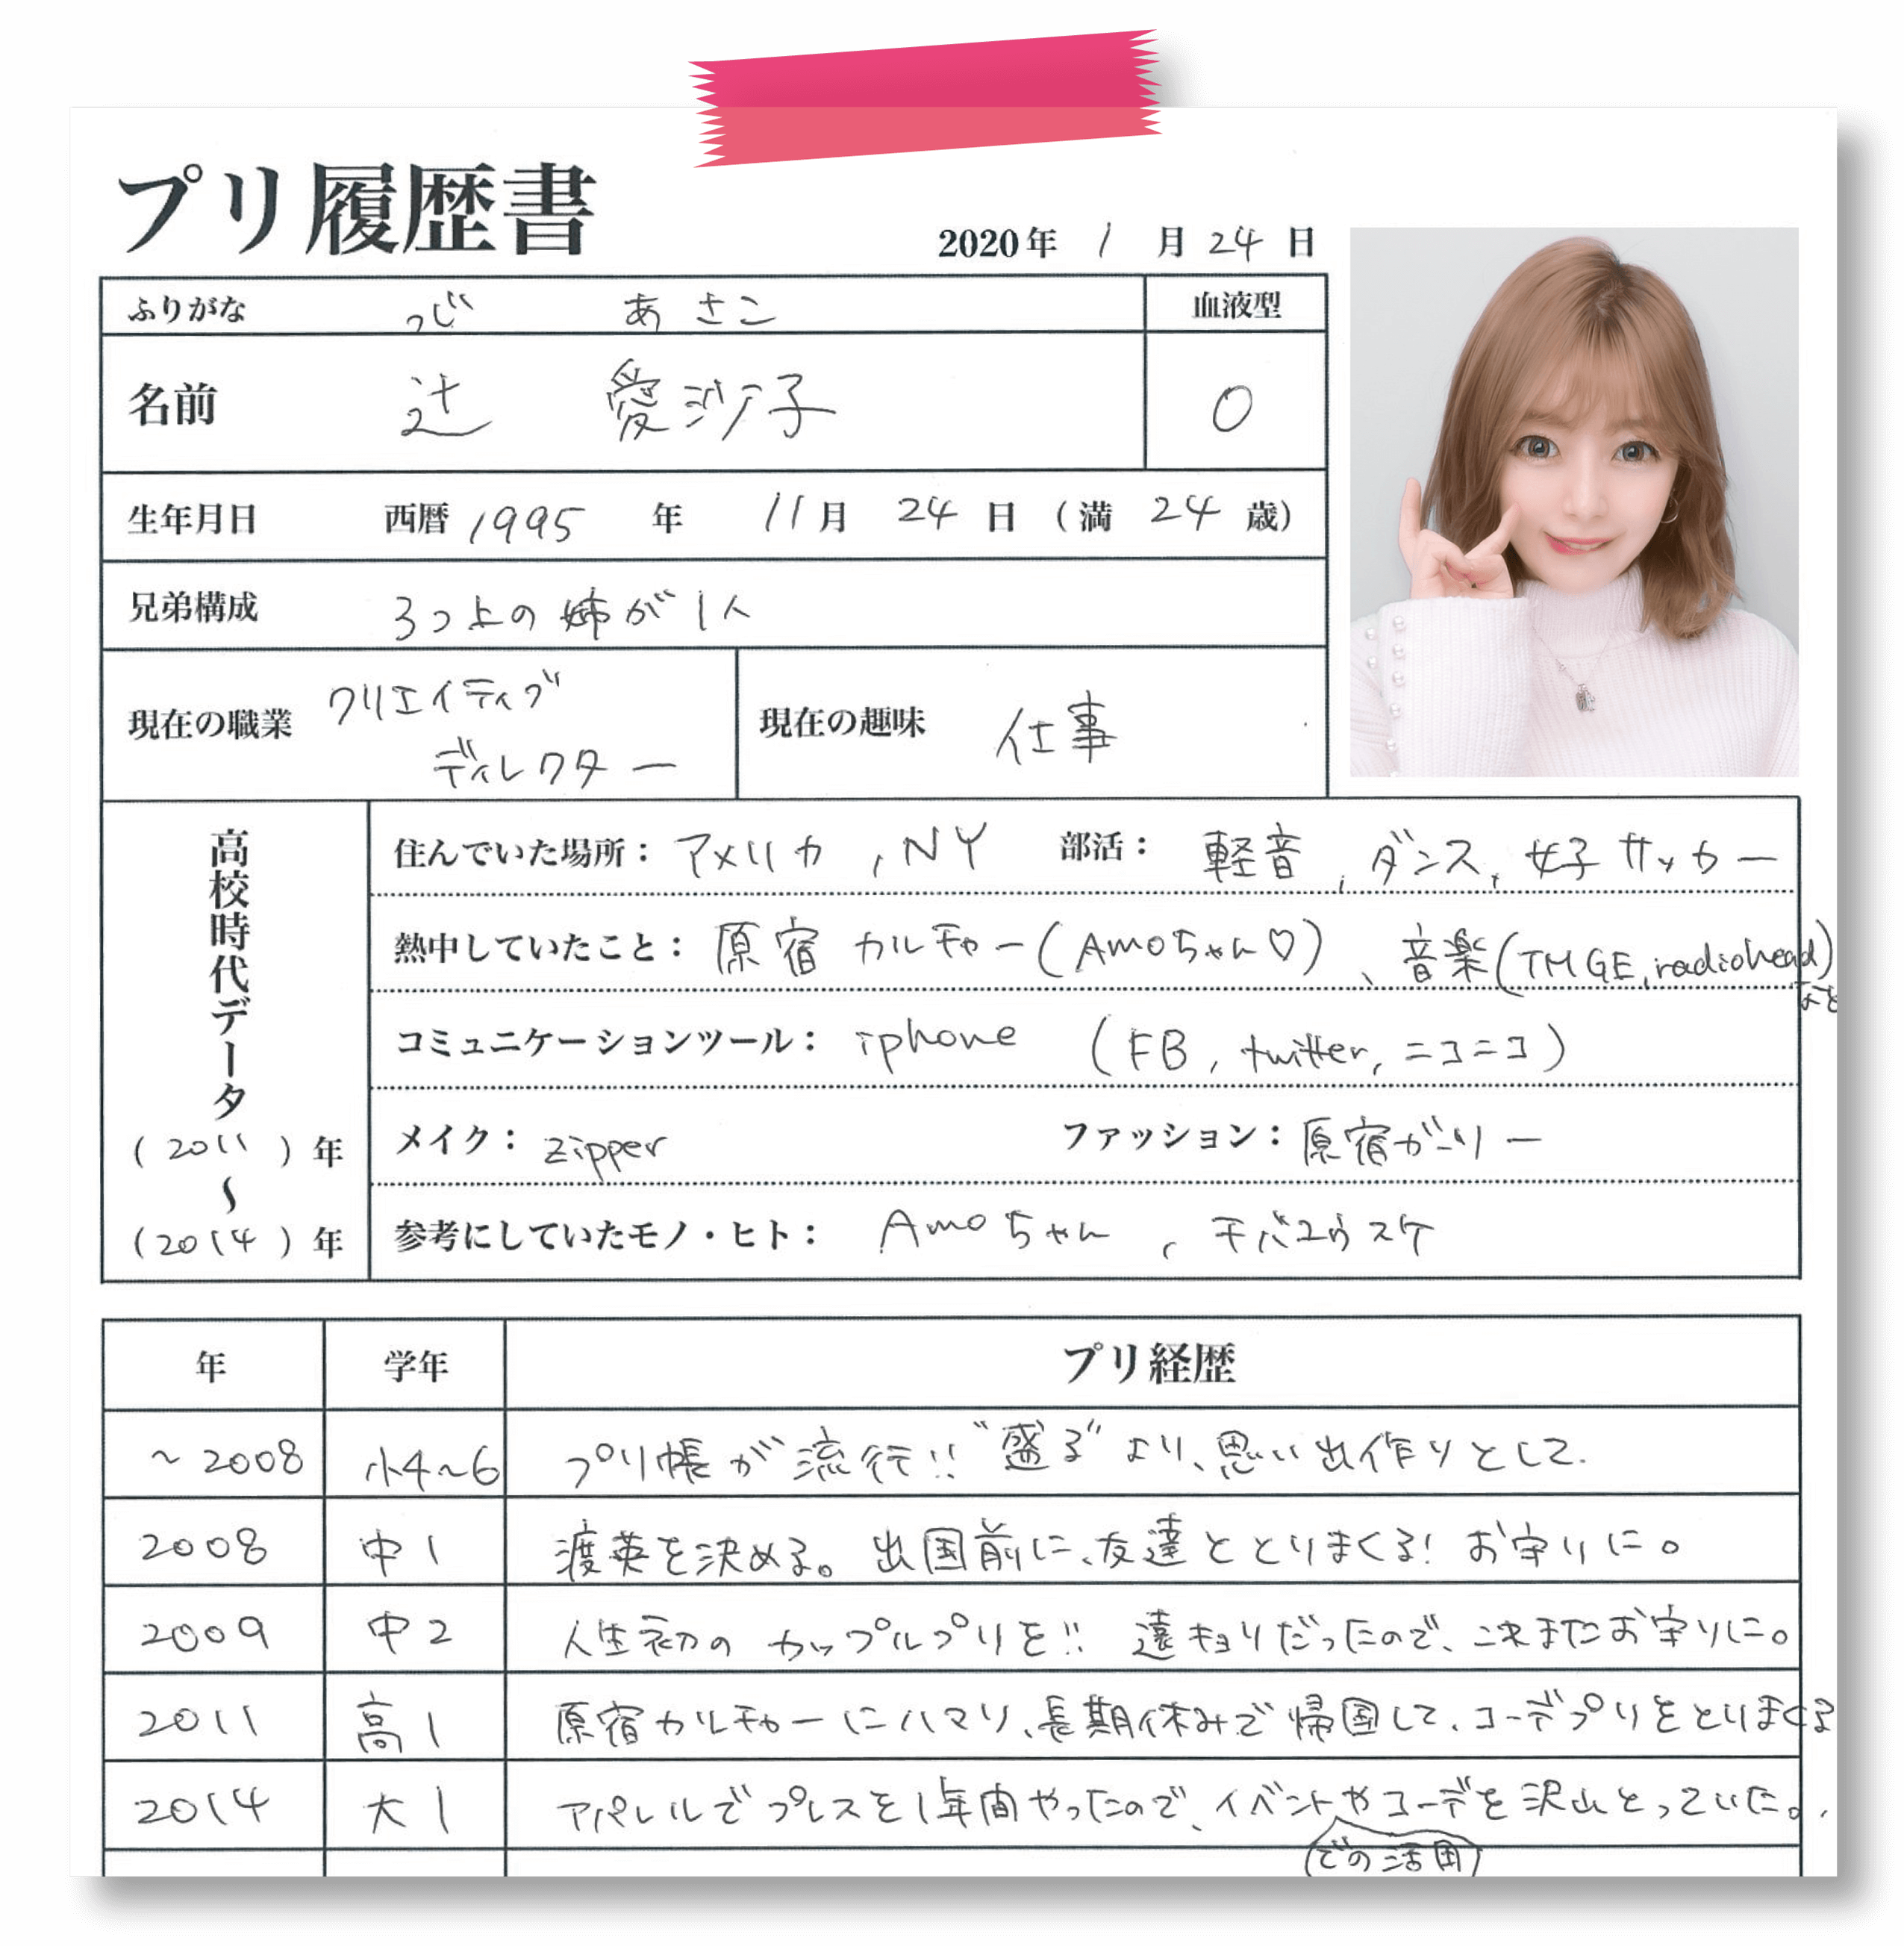 プリ履歴書
2020年 1月 24日
ふりがな つじ あさこ 血液型
名前 辻 愛沙子 O
生年月日 西暦 1995 年 11月 24 日 (満 24 歳)
兄弟構成 3つ上の姉が1人
現在の職業 クリエイティブ
ディレクター
現在の趣味 仕事
高校時代データ
(2011)年
〜
(2014)年
住んでいた場所: アメリカ, NY 部活: 軽音, ダンス, 女子サッカー
熱中していたこと: 原宿カルチャー(Amoちゃん♡)、音楽(TMGE, radiohead)
など
コミュニケーションツール: iphone (FB, twitter, ニコニコ)
メイク: zipper ファッション: 原宿ガーリー
参考にしていたモノ・ヒト: Amoちゃん, チバユウスケ
年 学年 プリ経歴
~2008 小4~6 プリ帳が流行!! "盛る"より、思い出作りとして.
2008 中1 渡英を決める。出国前に、友達ととりまくる! お守りに。
2009 中2 人生初のカップルプリを!! 遠キョリだったので、これまたお守りに。
2011 高1 原宿カルチャーにハマり、長期休みで帰国して、コーデプリをとりまくる
2014 大1 アパレルでプレスを1年間やったので、イベントやコーデを沢山とっていた。
での活用